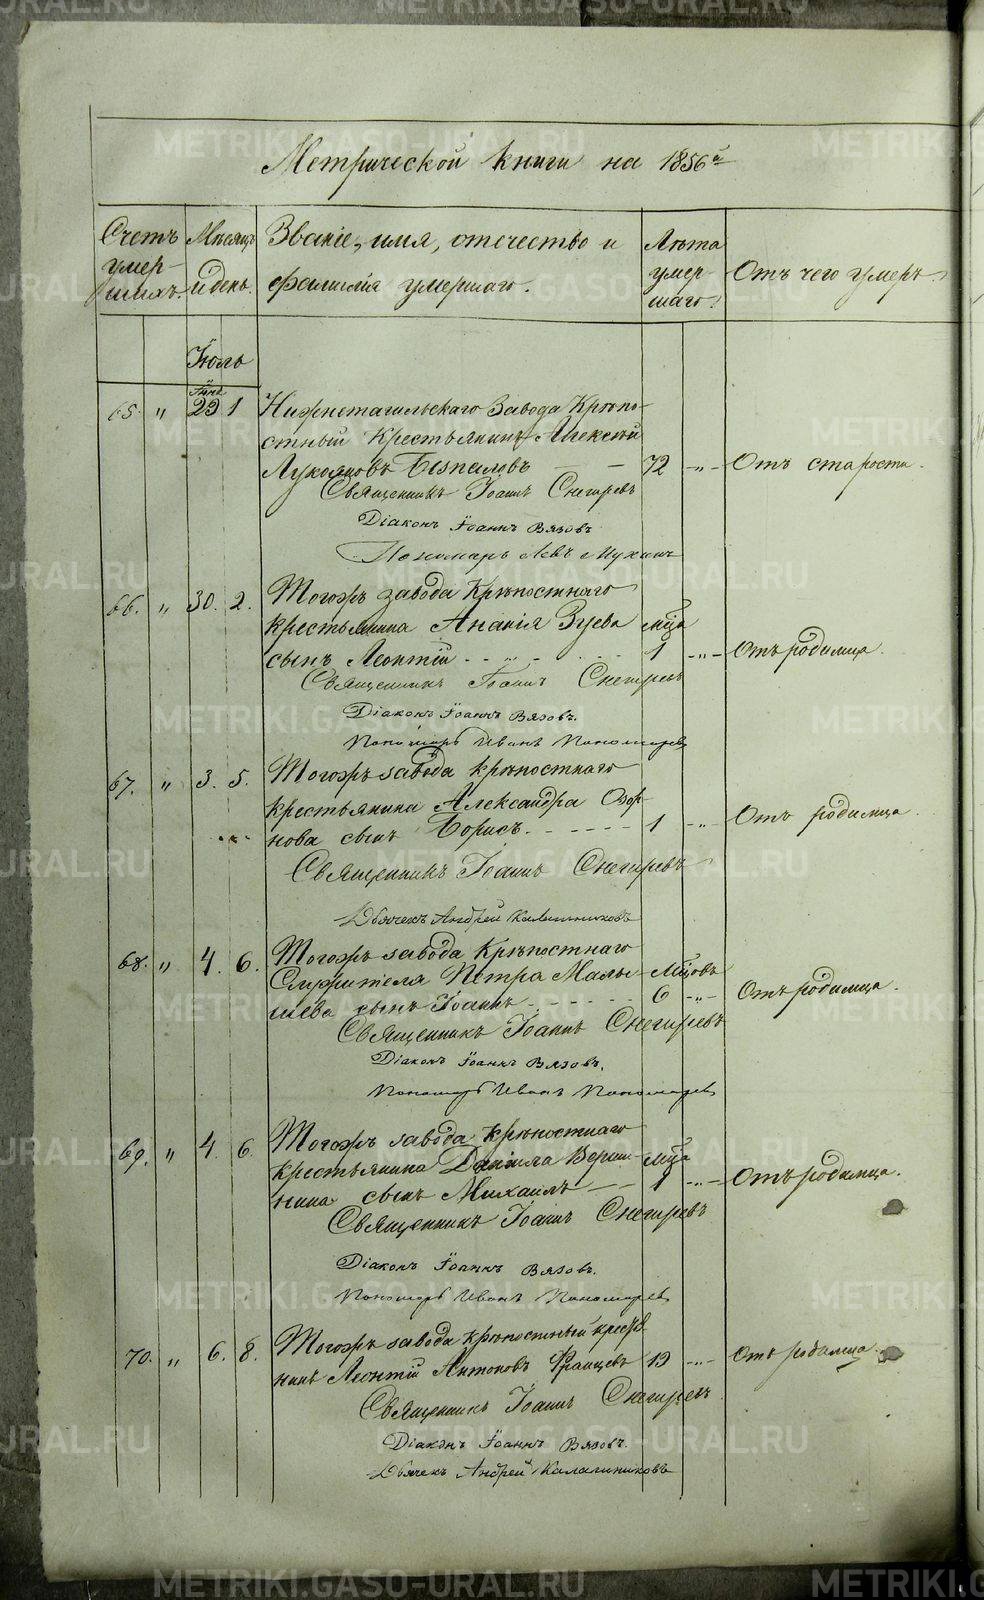 Метрической книги на 1856й
Счетъ умер-шихъ. Мѣсяцъ и день. Званіе, имя, отечество и фамилія умершаго. Лѣта умер-шаго. Отъ чего умеръ.
Іюль
Іюня
65. " 29 1 Нижнетагильскаго Завода Крѣпо-
стный Крестьянинъ Алексѣй
Лукояновъ Безпаловъ 72 " Отъ старости.
Священникъ Іоаннъ Снегиревъ
Діаконъ Іоаннъ Вязовъ
Пономарь Левъ Мухинъ
66. " 30. 2. Тогожъ завода Крѣпостнаго
крестьянина Ананія Зуева мца
сынъ Леонтій 1 " Отъ родимца.
Священникъ Іоаннъ Снегиревъ
Діаконъ Іоаннъ Вязовъ.
Пономарь Иванъ Пономаревъ
67. " 3. 5. Тогожъ завода крѣпостнаго
крестьянина Александра
нова сынъ Борисъ. 1 " Отъ родимца.
Священникъ Іоаннъ Снегиревъ
Дьячекъ Андрей Калашниковъ
68. " 4. 6. Тогожъ завода Крѣпостнаго
Служителя Петра Малы- мцовъ
шева сынъ Іоаннъ 6 " Отъ родимца.
Священникъ Іоаннъ Снегиревъ
Діаконъ Іоаннъ Вязовъ.
Пономарь Иванъ Пономаревъ
69. " 4. 6. Тогожъ завода крѣпостнаго
крестьянина Даніила Верши- мца
нина сынъ Михаилъ 1 " Отъ родимца.
Священникъ Іоаннъ Снегиревъ
Діаконъ Іоаннъ Вязовъ.
Пономарь Иванъ Пономаревъ
70. " 6. 8. Тогожъ завода крѣпостный
Леонтій Антоновъ 19 " Отъ родимца.
Священникъ Іоаннъ Снегиревъ
Діаконъ Іоаннъ Вязовъ.
Дьячекъ Андрей Калашниковъ
METRIKI.GASO-URAL.RU